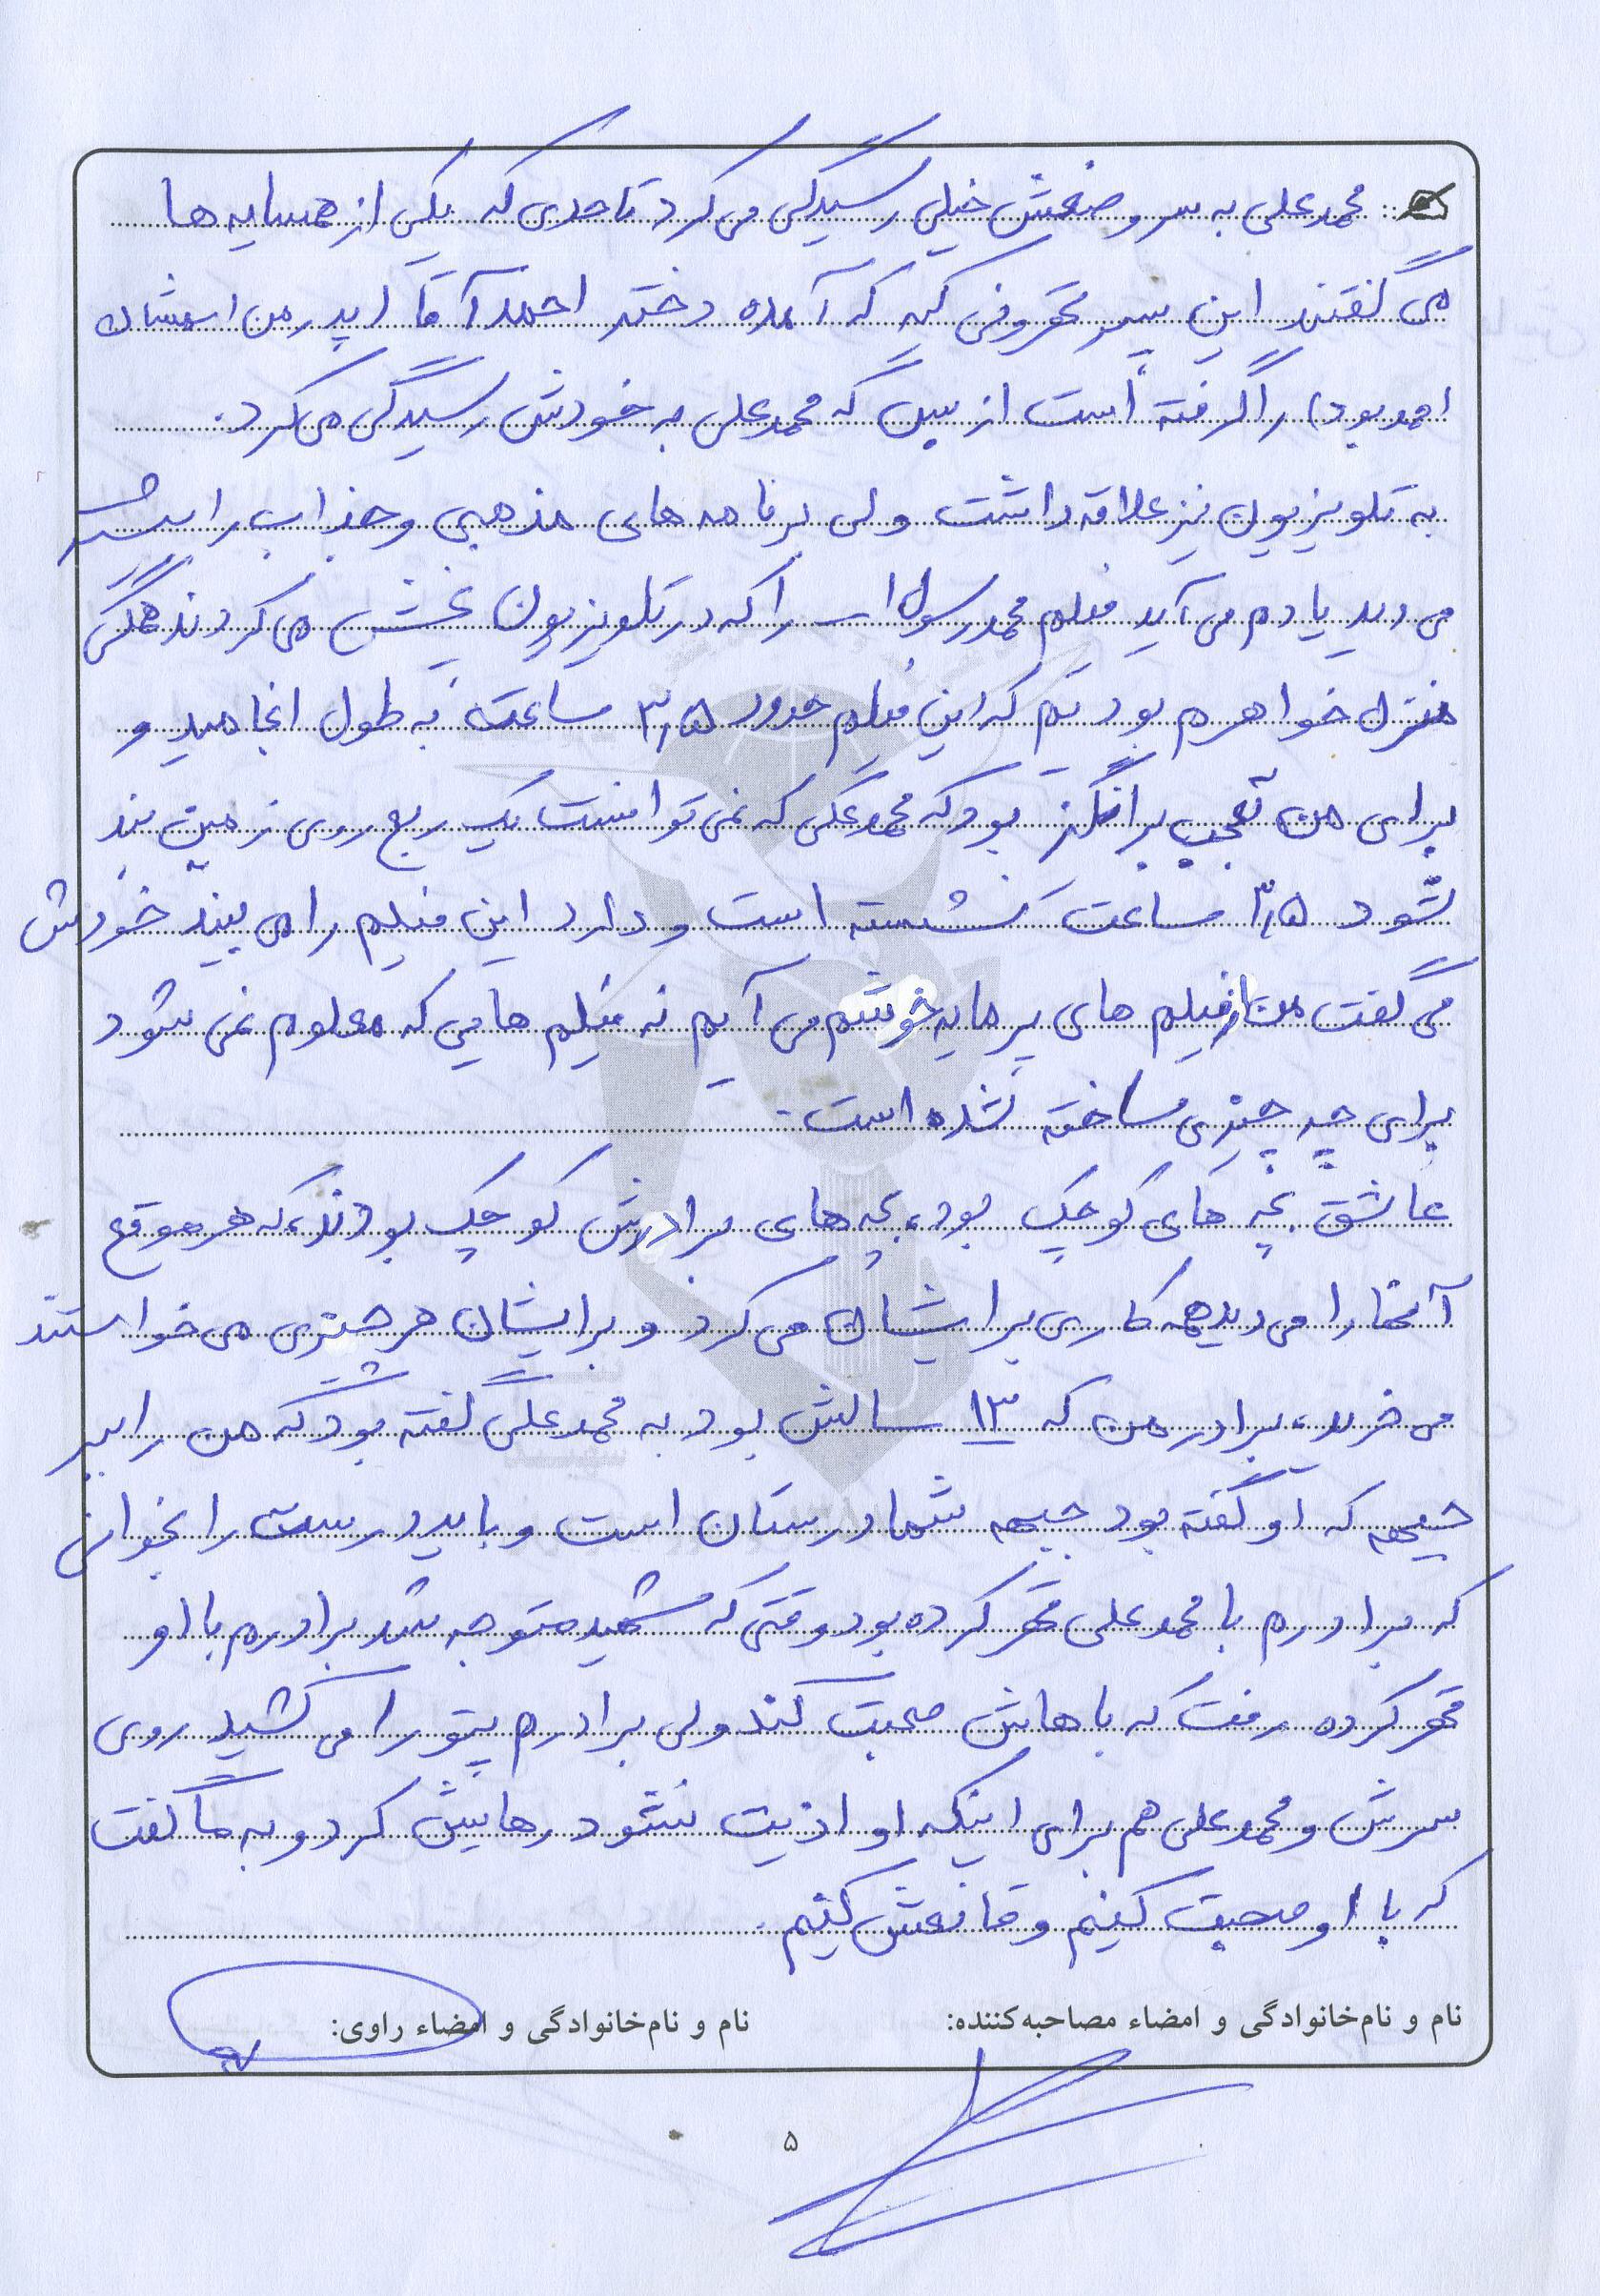 محمدعلی به سر و وضعش خیلی رسیدگی می کرد تا حدی که یکی از همسایه ها
می گفتند این پسر تحروفی کیه که آمده دختر احمد آقا (پدر من اسمشان
احمد بود) را گرفته است از بس که محمدعلی به خودش رسیدگی می کرد.
به تلویزیون نیز علاقه داشت ولی برنامه های مذهبی و جذاب را بیشتر
می دید یادم می آید فیلم محمد رسول ا... را که در تلویزیون پخش می کردند همگی
منزل خواهرم بودیم که این فیلم حدود ۳,۵ ساعت به طول انجامید و
برای من تعجب برانگیز بود که محمدعلی که نمی توانست یک ربع روی زمین بند
شود ۳,۵ ساعت نشسته است و دارد این فیلم را می بیند خودش
می گفت من از فیلم های پرمایه خوشم می آیم نه فیلم هایی که معلوم نمی شود
برای چه چیزی ساخته شده است.
عاشق بچه های کوچک بود، بچه های برادرش کوچک بودند، که هر موقع
آنها را می دید همه کاری برایشان می کرد و برایشان هر چیزی می خواستند
می خرید، برادر من که ۱۳ سالش بود به محمدعلی گفته بود که من را ببر
جبهه که او گفته بود جبهه شما درستان است و باید درست را بخوانی
که برادرم با محمدعلی قهر کرده بود وقتی که شهید متوجه شد برادرم با او
قهر کرده رفت که باهاش صحبت کند ولی برادرم پتو را می کشید روی
سرش و محمدعلی هم برای اینکه او اذیت نشود رهایش کرد و به ما گفت
که با او صحبت کنیم و قانعش کنیم.
نام و نام‌خانوادگی و امضاء مصاحبه‌کننده: نام و نام‌خانوادگی و امضاء راوی:
۵